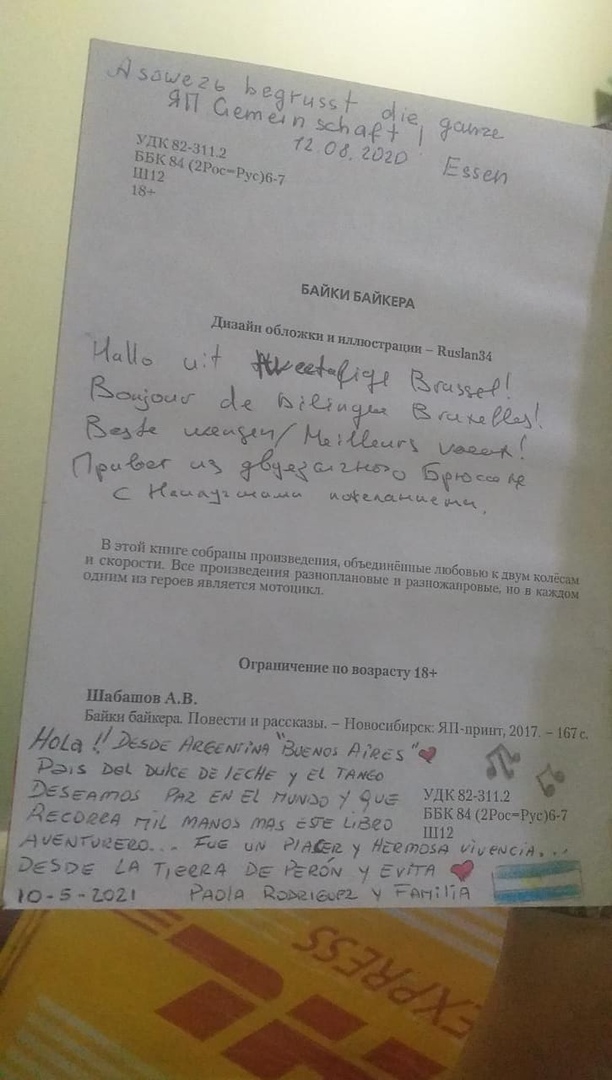 Asawezь begrusst die ganze
ЯП Gemeinschaft,
12.08.2020 Essen
УДК 82-311.2
ББК 84 (2Рос=Рус)6-7
Ш12
18+
БАЙКИ БАЙКЕРА
Дизайн обложки и иллюстрации – Ruslan34
Hallo uit tweetalige Brussel!
Bonjour de bilingue Bruxelles!
Beste wensen/Meilleurs voeux!
Привет из двуязычного Брюсселя
с наилучшими пожеланиями.
В этой книге собраны произведения, объединённые любовью к двум колёсам
и скорости. Все произведения разноплановые и разножанровые, но в каждом
одним из героев является мотоцикл.
Ограничение по возрасту 18+
Шабашов А.В.
Байки байкера. Повести и рассказы. – Новосибирск: ЯП-принт, 2017. – 167 с.
HOLA!! DESDE ARGENTINA "BUENOS AIRES"
PAIS DEL DULCE DE LECHE Y EL TANGO
DESEAMOS PAZ EN EL MUNDO Y QUE
RECORRA MIL MANOS MAS ESTE LIBRO
AVENTURERO... FUE UN PLACER Y HERMOSA VIVENCIA...
DESDE LA TIERRA DE PERÓN Y EVITA
10-5-2021 PAOLA RODRIGUEZ Y FAMILIA
УДК 82-311.2
ББК 84 (2Рос=Рус)6-7
Ш12
EXPRESS